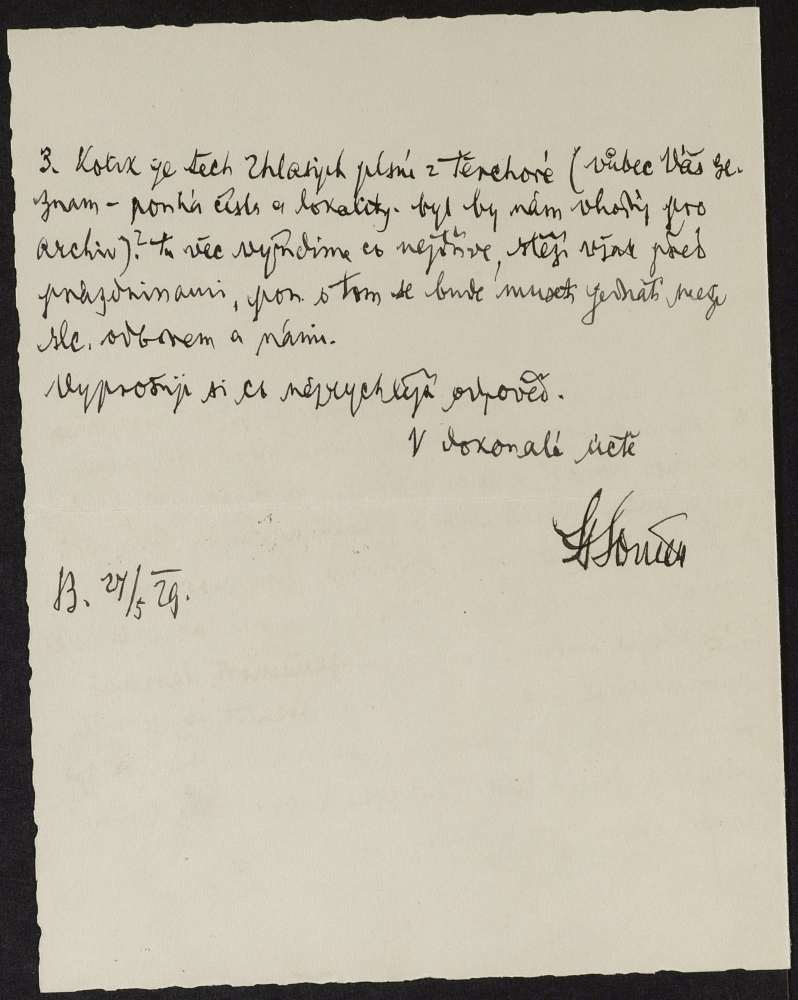 3. Kolik je těch 2hlasých písní z Těrchové (vůbec Váš se-
znam – pouhá čísla a lokality – byl by nám vhodný pro
archiv)? Tu věc vyřídíme co nejdříve, stěží však před
prázdninami, pon. o tom se bude museti jednati mezi
slc. odborem a námi.
Vyprošuji si co nejrychlejší odpověď.
V dokonalé úctě
B. 27/5 29.